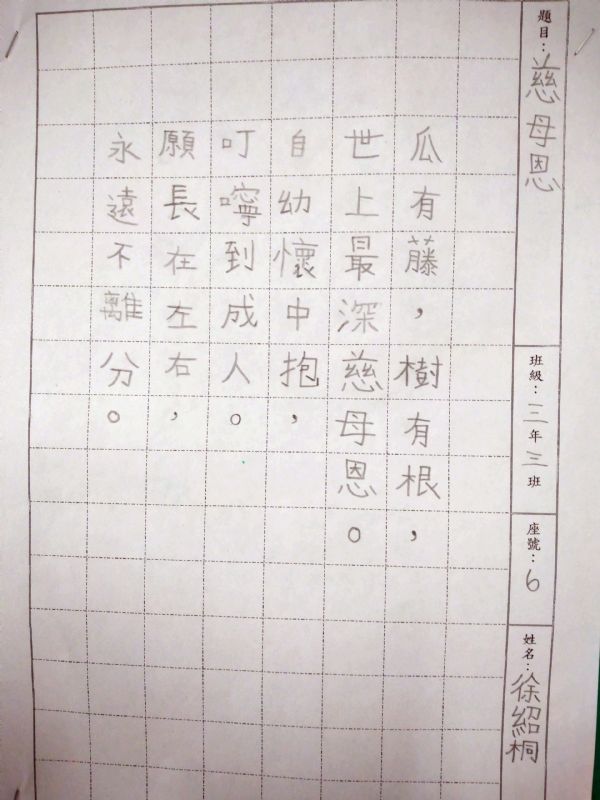 題目：慈母恩
班級：二年三班
座號：6
姓名：徐紹桐
瓜有藤，樹有根，
世上最深慈母恩。
自幼懷中抱，
叮嚀到成人。
願長在左右，
永遠不離分。